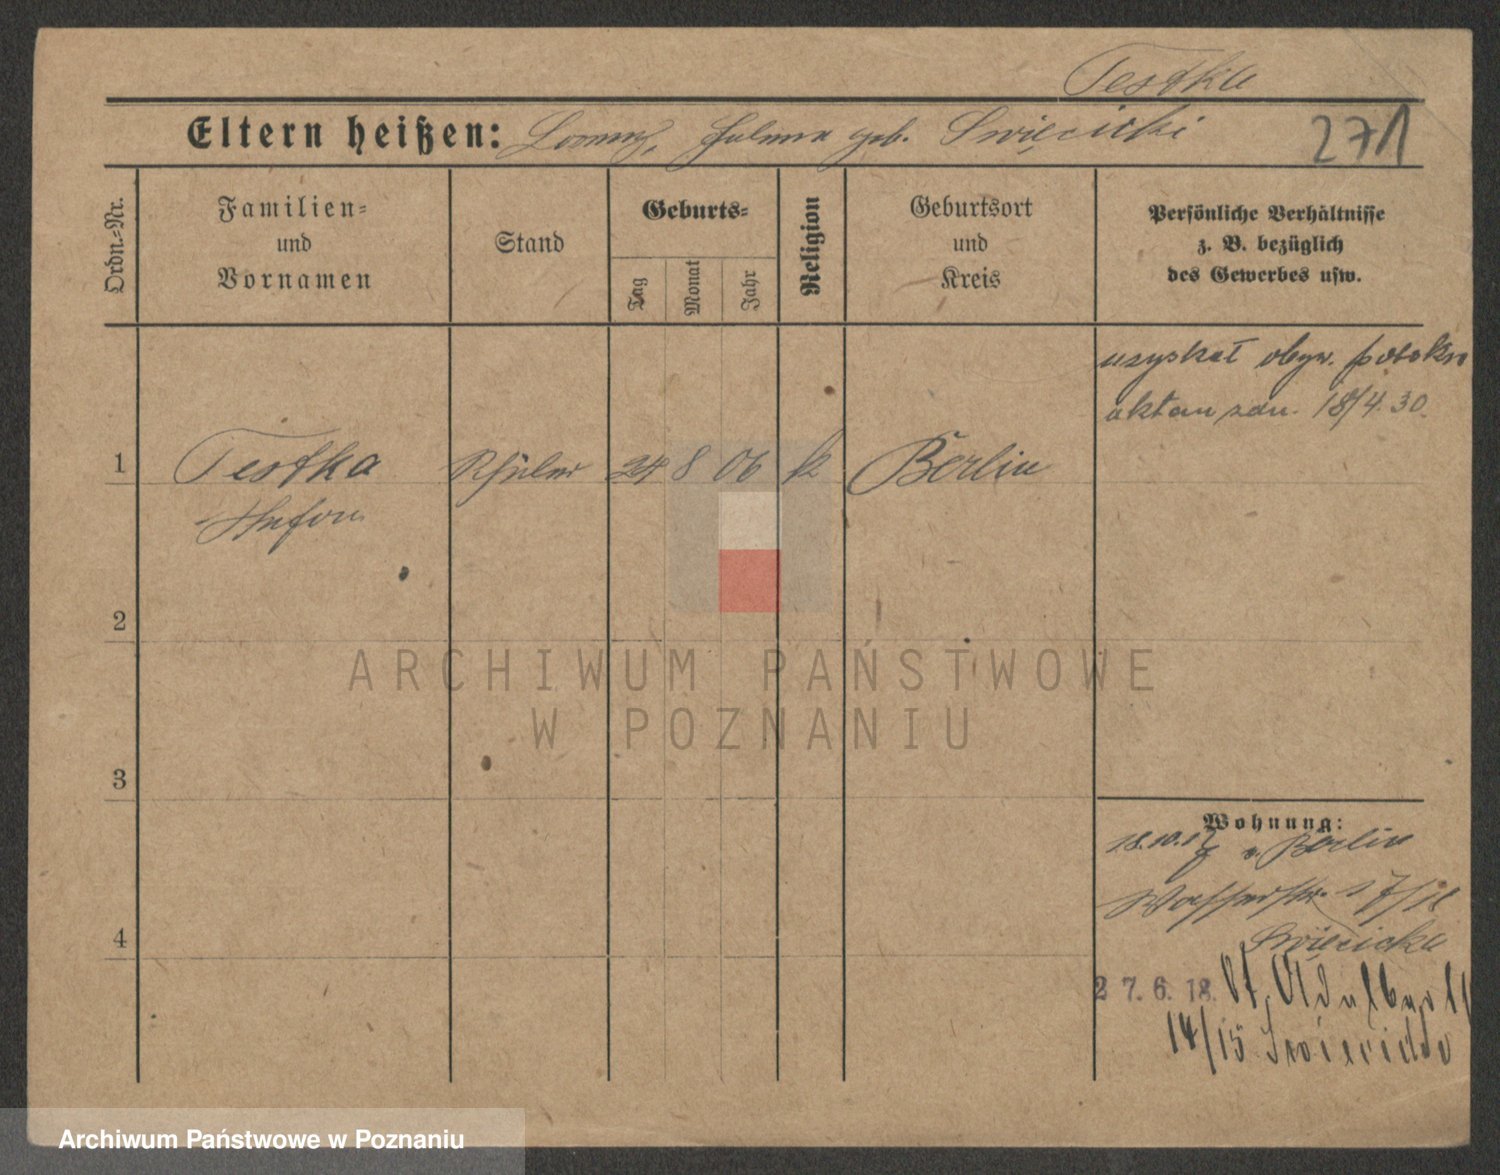 Testka
Eltern heißen: Lorenz, Helena geb. Swięcicki
271
Ordn.=Nr.
Familien=
und
Vornamen
Stand
Geburts=
Tag
Monat
Jahr
Religion
Geburtsort
und
Kreis
Persönliche Verhältnisse
z. B. bezüglich
des Gewerbes usw.
uzyskał obyw. polskie
aktem zdn. 18/4.30.
1 Testka Schüler 24 8 06 k Berlin
Stefan
2
3
4
Wohnung:
18.10.17 v. Berlin
Wasserstr. 17/18
Swięcicka
27. 6. 18.
14/15 Swiecicka
ARCHIWUM PAŃSTWOWE
W POZNANIU
Archiwum Państwowe w Poznaniu